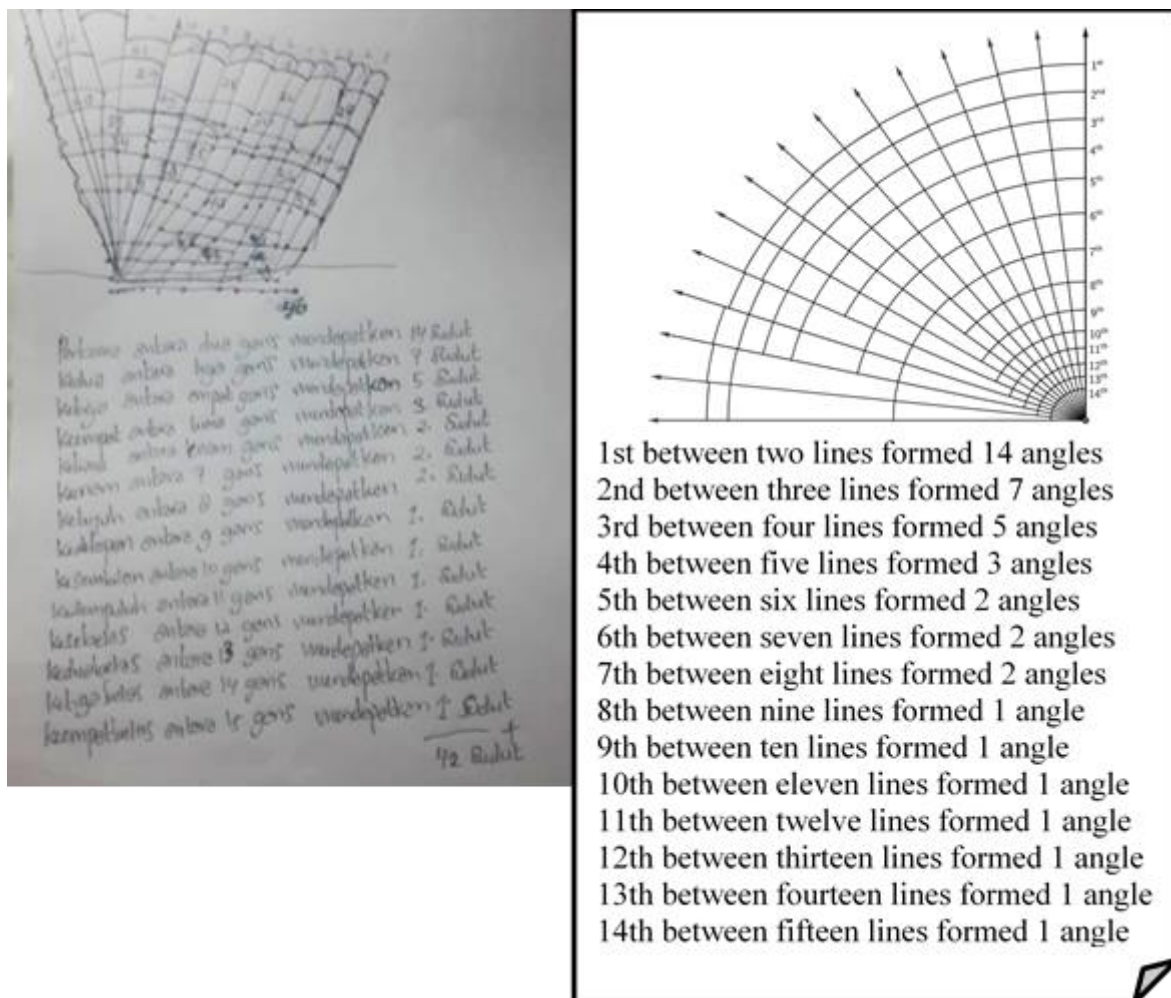 Pertama antara dua garis mendapatkan 14 Sudut
kedua antara tiga garis mendapatkan 7 Sudut
ketiga antara empat garis mendapatkan 5 Sudut
keempat antara lima garis mendapatkan 3 Sudut
kelima antara enam garis mendapatkan 2. Sudut
keenam antara 7 garis mendapatkan 2. Sudut
ketujuh antara 8 garis mendapatkan 2. Sudut
kedelapan antara 9 garis mendapatkan 1. Sudut
kesembilan antara 10 garis mendapatkan 1. Sudut
antara 11 garis mendapatkan 1. Sudut
kesebelas antara 12 garis mendapatkan 1. Sudut
keduabelas antara 13 garis mendapatkan 1. Sudut
ketigabelas antara 14 garis mendapatkan 1. Sudut
keempatbelas antara 15 garis mendapatkan 1 Sudut
+
42 Sudut
1st
2nd
3rd
4th
5th
6th
7th
8th
9th
10th
11th
12th
13th
14th
1st between two lines formed 14 angles
2nd between three lines formed 7 angles
3rd between four lines formed 5 angles
4th between five lines formed 3 angles
5th between six lines formed 2 angles
6th between seven lines formed 2 angles
7th between eight lines formed 2 angles
8th between nine lines formed 1 angle
9th between ten lines formed 1 angle
10th between eleven lines formed 1 angle
11th between twelve lines formed 1 angle
12th between thirteen lines formed 1 angle
13th between fourteen lines formed 1 angle
14th between fifteen lines formed 1 angle